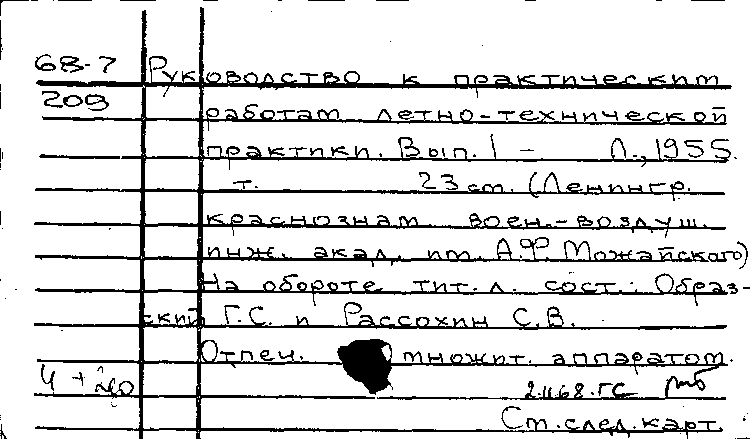 68-7 Руководство к практическим
209 работам летно-технической
практики. Вып. 1 – Л., 1955.
т. 23 см. (Ленингр.
краснознам. воен.-воздуш.
инж. акад. им. А.Ф. Можайского)
На обороте тит. л. сост.: Образ-
ский Г.С. и Рассохин С.В.
Отпеч. множит. аппаратом.
4 + 2.1168.ГС
См. след. карт.